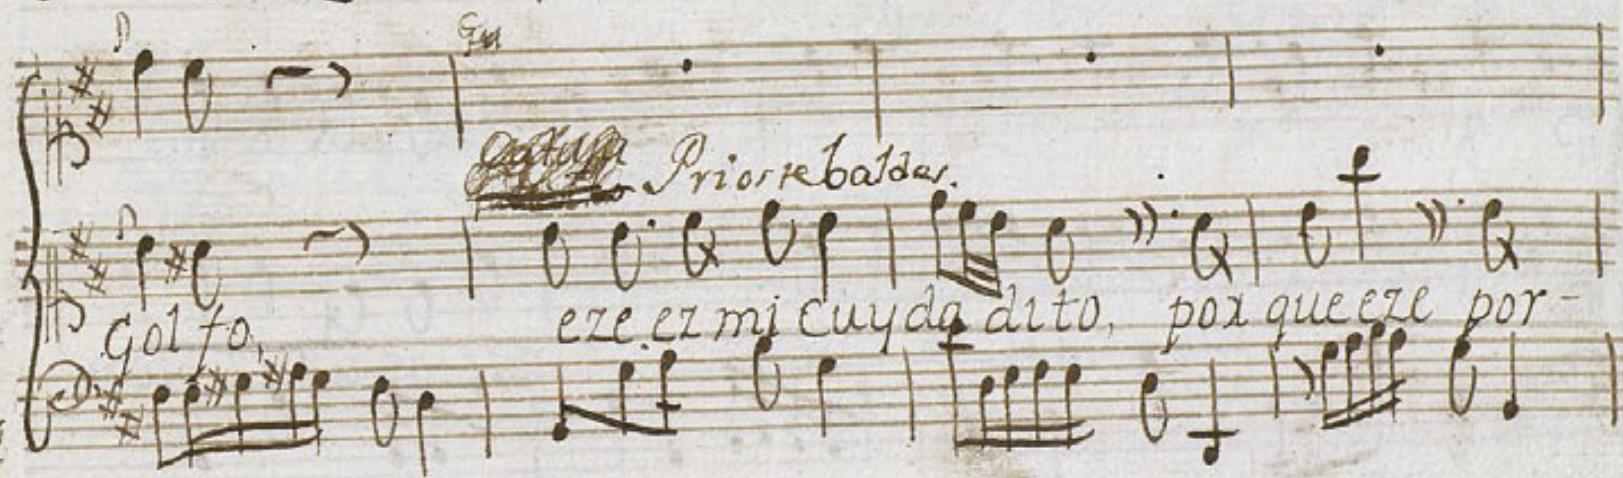 Priostebaldes.
Golfo, eze ez mi cuydadito, porque eze por-